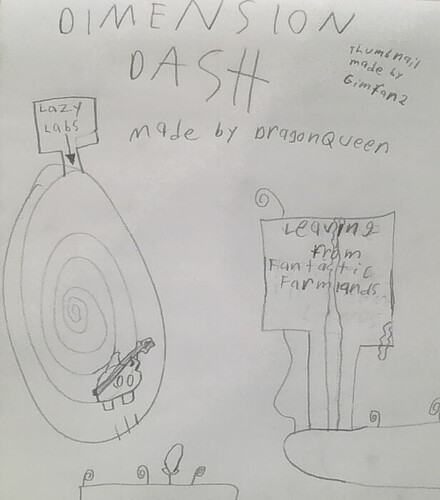 DIMENSION
DASH
Thumbnail
made by
GimFan2
made by DragonQueen
Lazy
Labs
Leaving
from
Fantastic
Farmlands